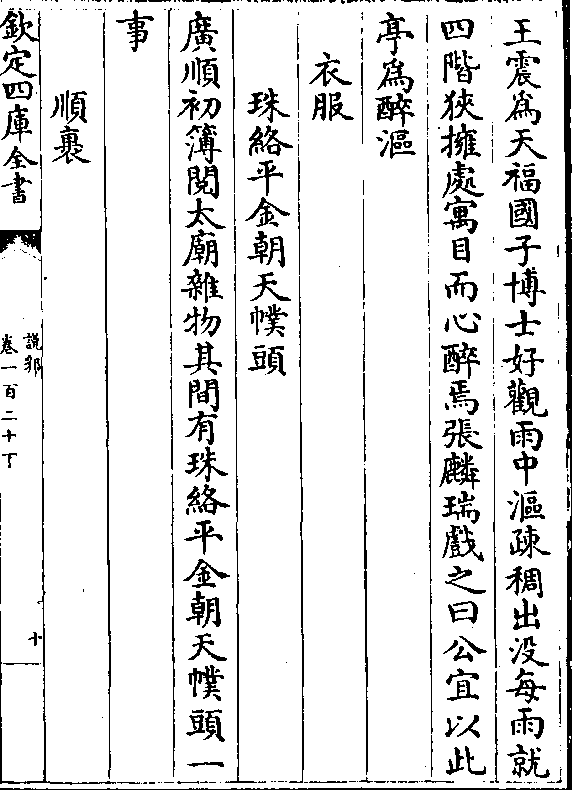 王震為天福國子博士好觀雨中漚疎稠出没每雨就
四階狹擁處寓目而心醉焉張麟瑞戲之曰公宜以此
亭為醉漚
衣服
珠絡平金朝天幞頭
廣順初簿閱太廟雜物其間有珠絡平金朝天幞頭一
事
順裹
欽定四庫全書
說郛
卷一百二十下
十